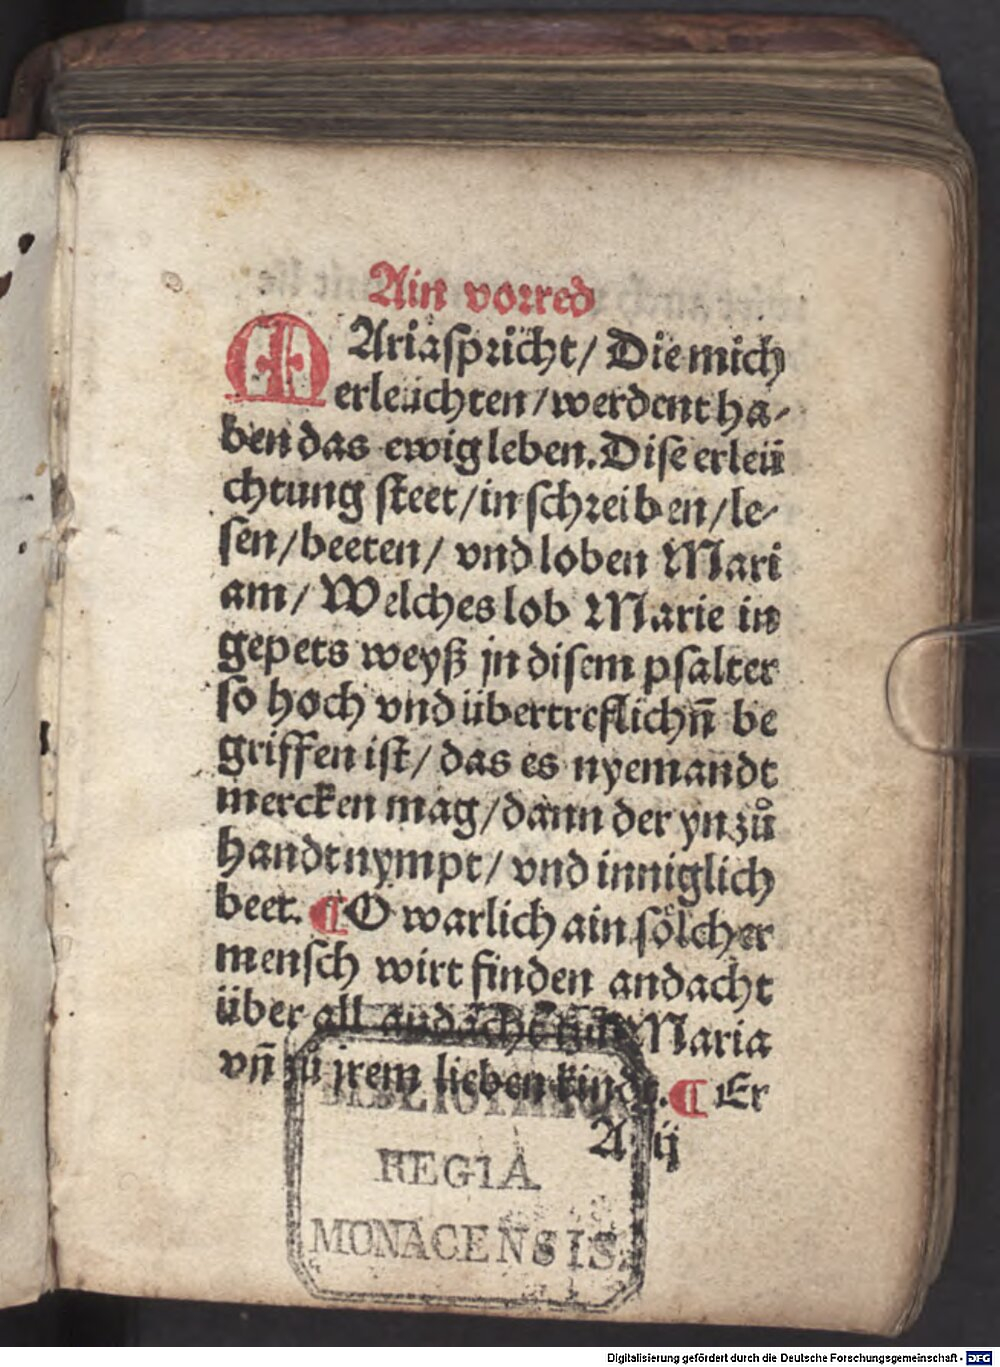 Ain vorred
MAria spricht/ Die mich
erleüchten/werdent ha-
ben das ewig leben. Dise erleü
chtung steet/in schreiben/le-
sen/beeten/ vnd loben Mari
am/ Welches lob Marie in
gepets weyß jn disem psalter
so hoch vnd übertreflichñ be
griffen ist/ das es nyemandt
mercken mag/dann der yn zů
handt nympt/ vnd inniglich
beet. ¶ O warlich ain sölcher
mensch wirt finden andacht
über all andacht zu Maria
vñ zu jrem lieben kindt. ¶ Er
A ij
BIBLIOTHECA
REGIA
MONACENSIS.
Digitalisierung gefördert durch die Deutsche Forschungsgemeinschaft - DFG